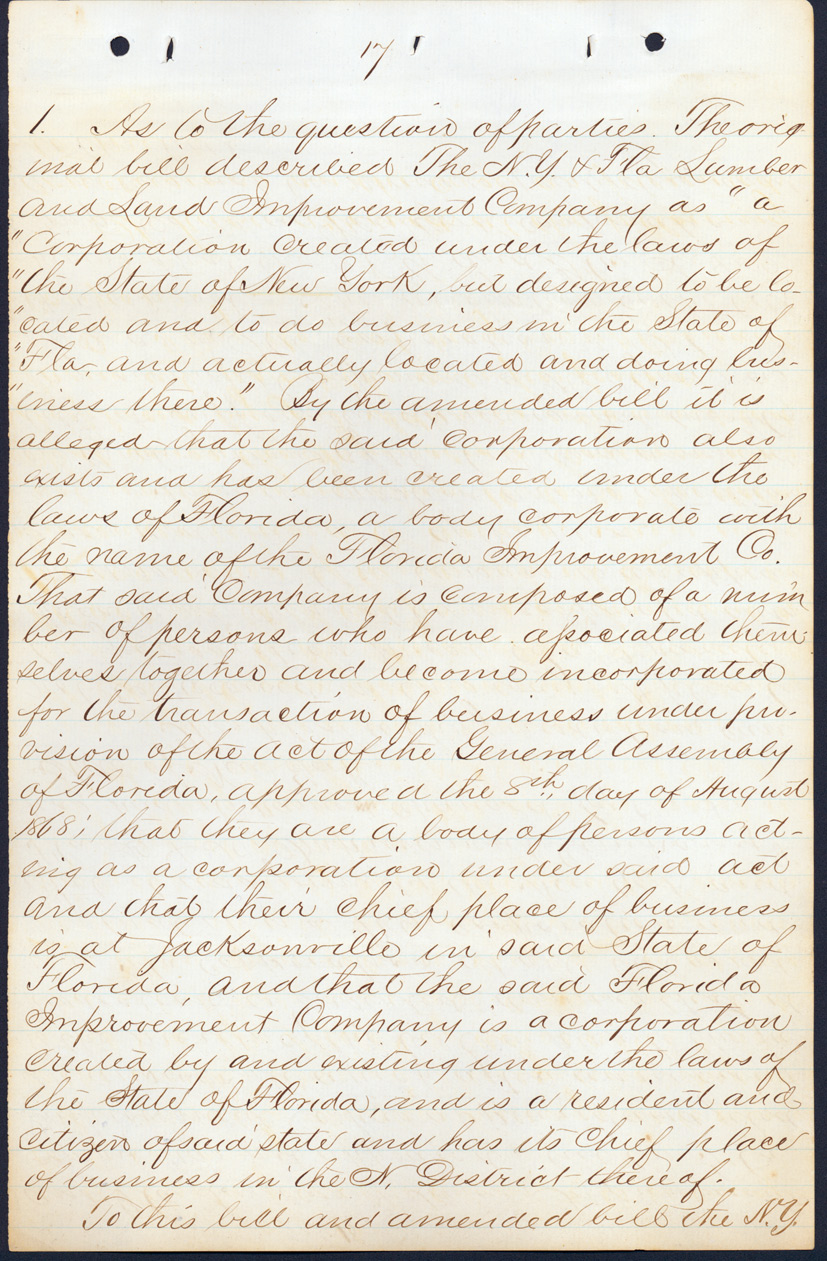 17
1. As to the question of parties. The orig-
inal bill described The N.Y. & Fla Lumber
and Land Improvement Company as "a
"Corporation created under the laws of
"the State of New York, but designed to be lo-
"cated and to do business in the State of
"Fla, and actually located and doing bus-
"iness there." By the amended bill it is
alleged that the said Corporation also
exists and has been created under the
laws of Florida, a body corporate with
the name of the Florida Improvement Co.
That said Company is composed of a num
ber of persons who have associated them-
selves together and become incorporated
for the transaction of business under pro-
vision of the act of the General Assembly
of Florida, approved the 8th, day of August
1868; that they are a body of persons act-
ing as a corporation under said act
and that their chief place of business
is at Jacksonville in said State of
Florida, and that the said Florida
Improvement Company is a corporation
created by and existing under the laws of
the State of Florida, and is a resident and
citizen of said state and has its chief place
of business in the N. District thereof.
To this bill and amended bill the N.Y.